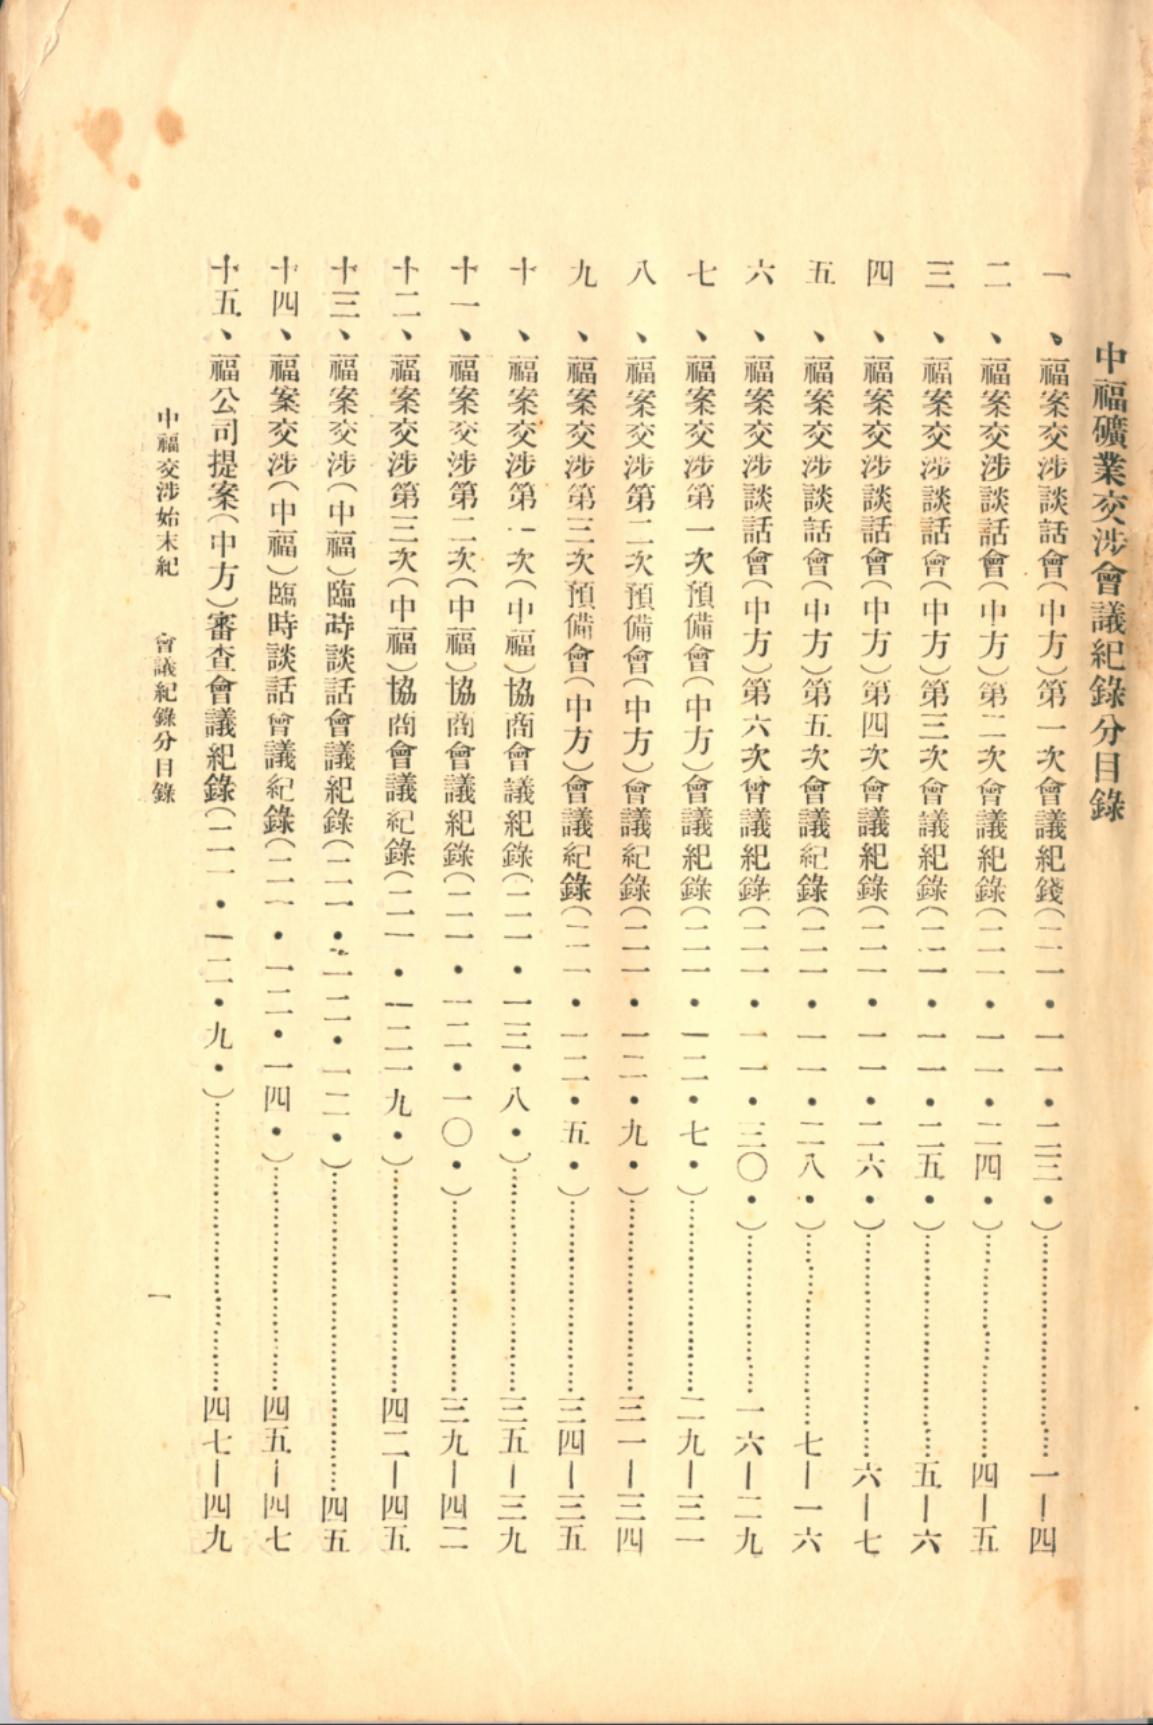 中福礦業交涉會議紀錄分目錄
一、福案交涉談話會(中方)第一次會議紀錢(二一•一一•二三•)……………一—四
二、福案交涉談話會(中方)第二次會議紀錄(二一•一一•二四•)……………四—五
三、福案交涉談話會(中方)第三次會議紀錄(二一•一一•二五•)……………五—六
四、福案交涉談話會(中方)第四次會議紀錄(二一•一一•二六•)……………六—七
五、福案交涉談話會(中方)第五次會議紀錄(二一•一一•二八•)……………七—一六
六、福案交涉談話會(中方)第六次會議紀錄(二一•一一•三〇•)……………一六—二九
七、福案交涉第一次預備會(中方)會議紀錄(二一•一二•七•)……………二九—三一
八、福案交涉第二次預備會(中方)會議紀錄(二一•一二•九•)……………三一—三四
九、福案交涉第三次預備會(中方)會議紀錄(二一•一二•五•)……………三四—三五
十、福案交涉第一次(中福)協商會議紀錄(二一•一三•八•)……………三五—三九
十一、福案交涉第二次(中福)協商會議紀錄(二一•一二•一〇•)……………三九—四二
十二、福案交涉第三次(中福)協商會議紀錄(二一•一二一九•)……………四二—四五
十三、福案交涉(中福)臨時談話會議紀錄(二一•一二•一二•)……………四五
十四、福案交涉(中福)臨時談話會議紀錄(二一•一二•一四•)……………四五—四七
十五、福公司提案(中方)審查會議紀錄(二一•一二•九•)……………四七—四九
中福交涉始末紀 會議紀錄分目錄 一